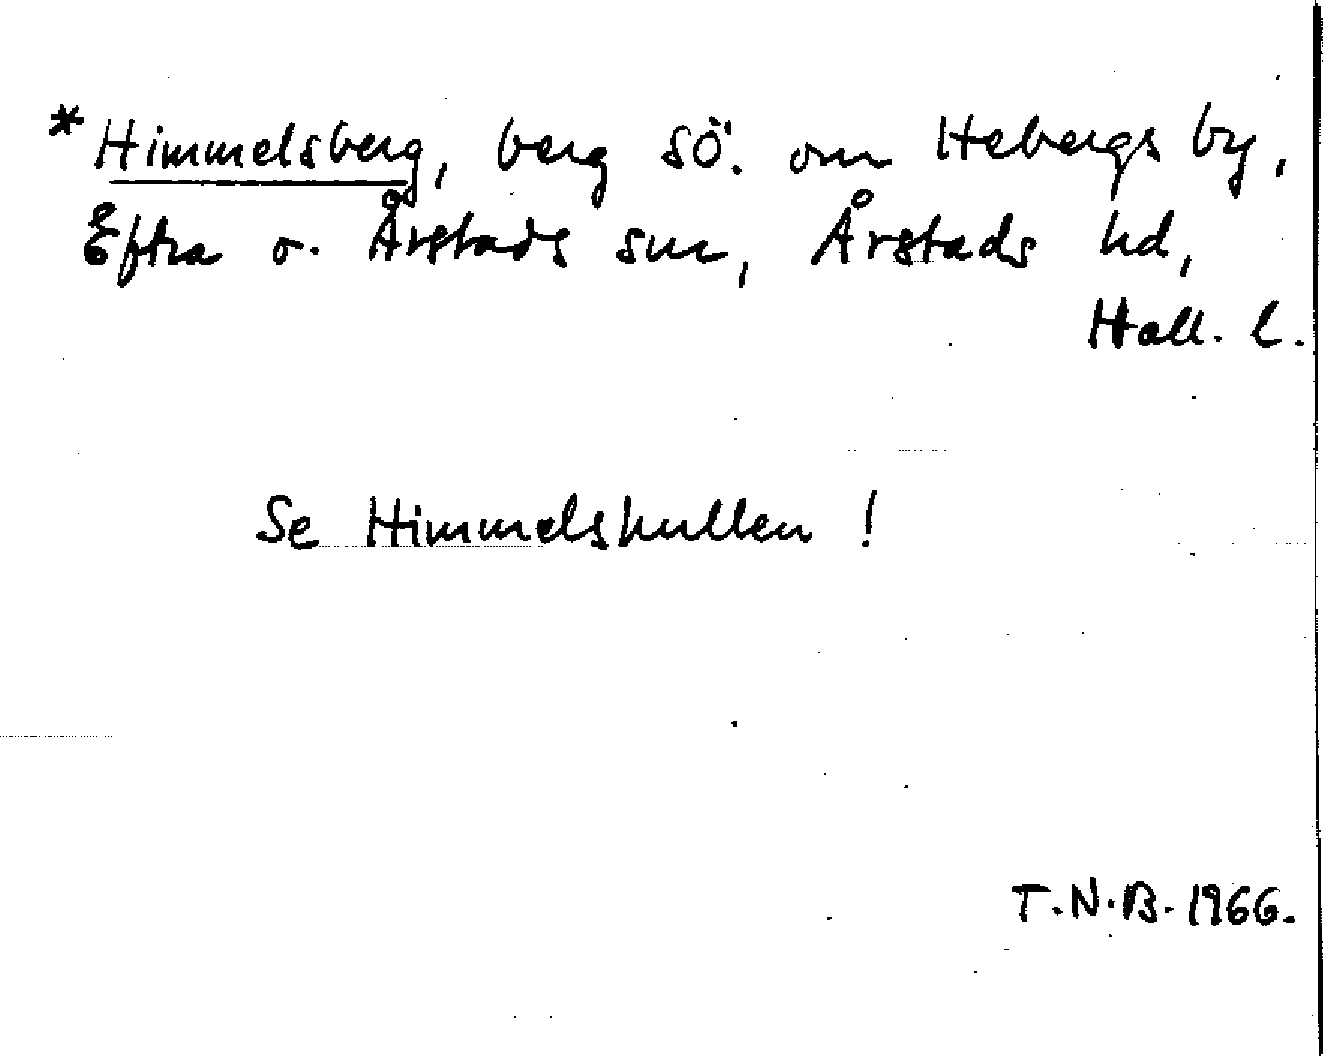 *Himmelsberg, berg sö. om Hebergs by,
Eftra o. Årstads snr, Årstads hd,
Hall. l.
Se Himmelskullen!
T.N.B. 1966.